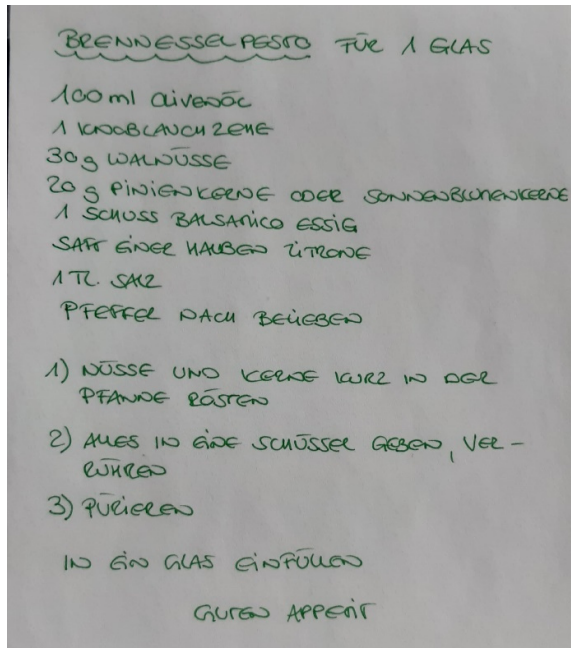 BRENNESSELPESTO FÜR 1 GLAS
100ml OLIVENÖL
1 KNOBLAUCHZEHE
30g WALNÜSSE
20 g PINIENKERNE ODER SONNENBLUMENKERNE
1 SCHUSS BALSAMICO ESSIG
SAFT EINER HALBEN ZITRONE
1 TL. SALZ
PFEFFER NACH BELIEBEN
1) NÜSSE UND KERNE KURZ IN DER
PFANNE RÖSTEN
2) ALLES IN EINE SCHÜSSEL GEBEN, VER-
RÜHREN
3) PÜRIEREN
IN EIN GLAS EINFÜLLEN
GUTEN APPETIT